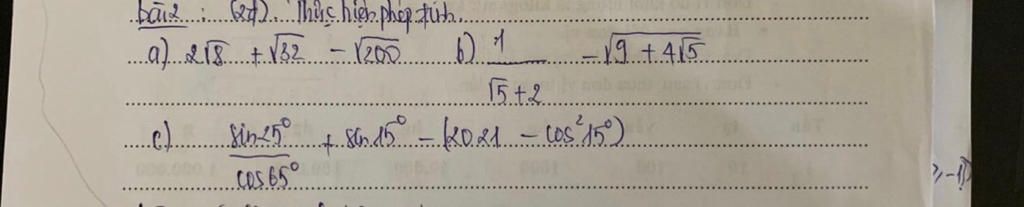 bài 2 : (2đ). Thực hiện phép tính.
a) 2√8 + √32 - √200 b) 1/(√5 + 2) - √(9 + 4√5)
c) sin25°/cos65° + sin15° - (2021 - cos²15°)